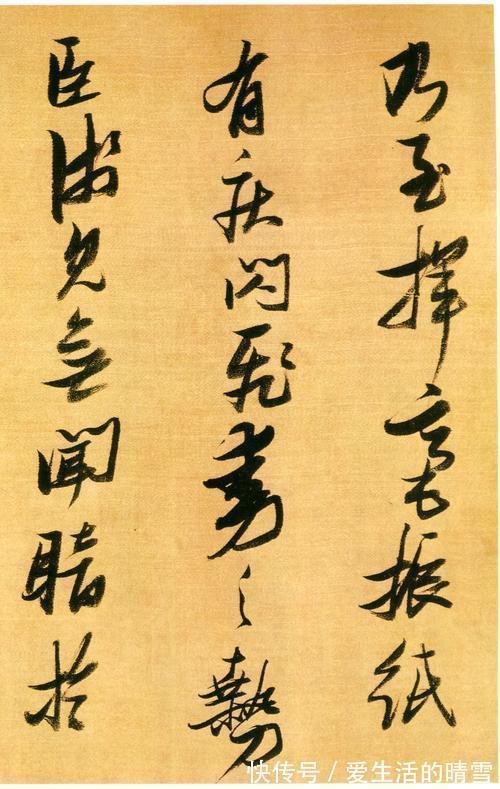 乃至揮毫振紙
有疾閃飛動之勢
臣無聞暗於
快传号 / 爱生活的晴雪